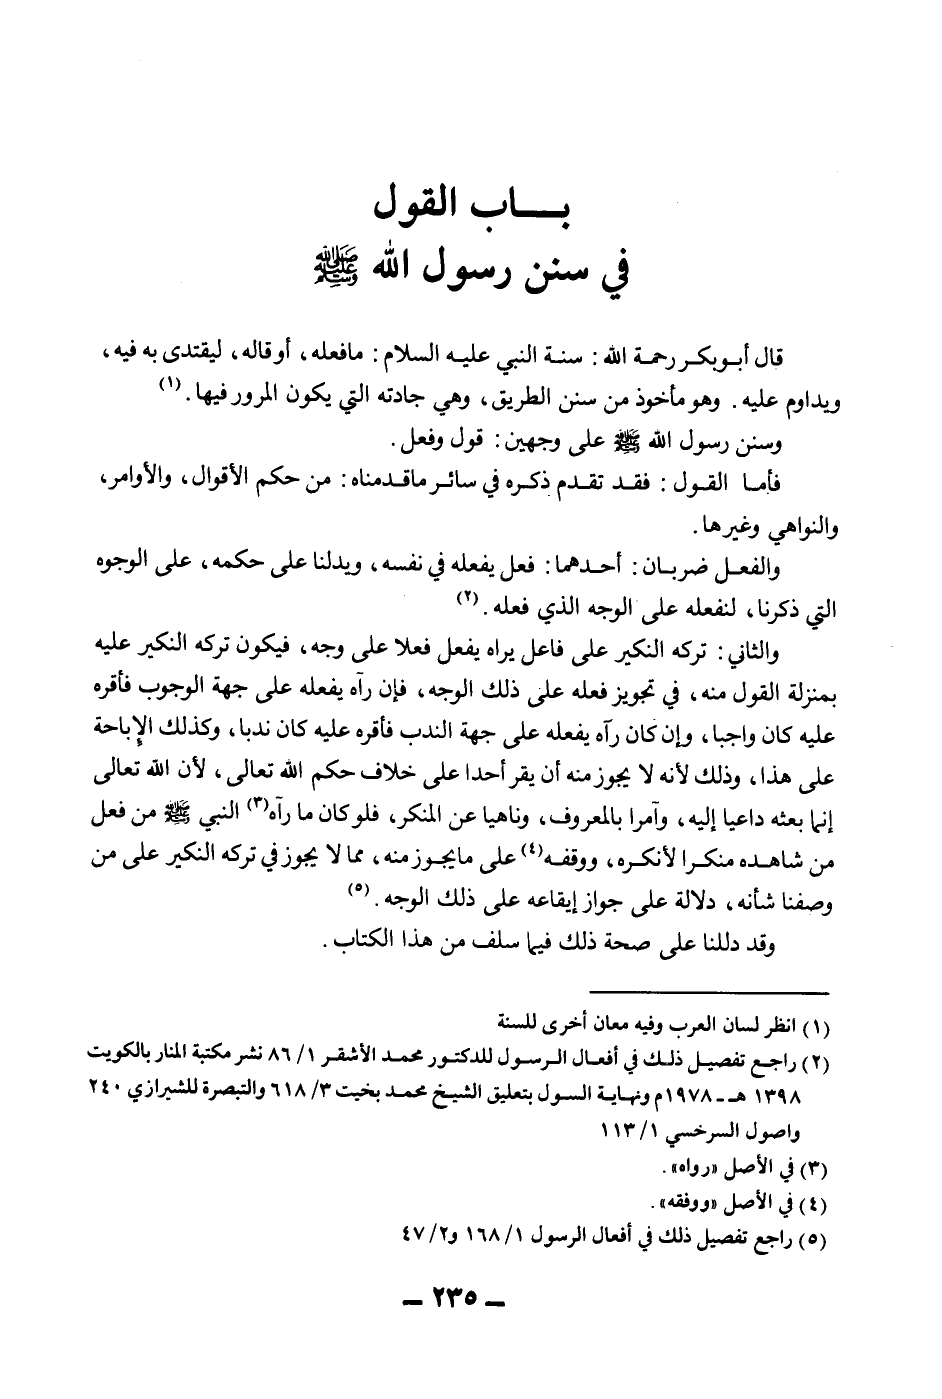 بـــاب القول
في سنن رسول الله ﷺ
قال أبوبكر رحمة الله : سنة النبي عليه السلام : مافعله، أوقاله، ليقتدى به فيه،
ويداوم عليه. وهو مأخوذ من سنن الطريق، وهي جادته التي يكون المرور فيها. (١)
وسنن رسول الله ﷺ على وجهين: قول وفعل.
فأما القول : فقد تقدم ذكره في سائر ماقدمناه: من حكم الأقوال، والأوامر،
والنواهي وغيرها.
والفعل ضربان: أحدهما: فعل يفعله في نفسه، ويدلنا على حكمه، على الوجوه
التي ذكرنا، لنفعله على الوجه الذي فعله. (٢)
والثاني: تركه النكير على فاعل يراه يفعل فعلا على وجه، فيكون تركه النكير عليه
بمنزلة القول منه، في تجويز فعله على ذلك الوجه، فإن رآه يفعله على جهة الوجوب فأقره
عليه كان واجبا، وإن كان رآه يفعله على جهة الندب فأقره عليه كان ندبا، وكذلك الإباحة
على هذا، وذلك لأنه لا يجوز منه أن يقر أحدا على خلاف حكم الله تعالى، لأن الله تعالى
إنما بعثه داعيا إليه، وآمرا بالمعروف، وناهيا عن المنكر، فلو كان ما رآه(٣) النبي ﷺ من فعل
من شاهده منكرا لأنكره، ووقفه(٤) على مايجوز منه، مما لا يجوز في تركه النكير على من
وصفنا شأنه، دلالة على جواز إيقاعه على ذلك الوجه. (٥)
وقد دللنا على صحة ذلك فيما سلف من هذا الكتاب.
(١) انظر لسان العرب وفيه معان أخرى للسنة
(٢) راجع تفصيل ذلك في أفعال الرسول للدكتور محمد الأشقر ١/ ٨٦ نشر مكتبة المنار بالكويت
١٣٩٨ هـ - ١٩٧٨م ونهاية السول بتعليق الشيخ محمد بخيت ٣/ ٦١٨ والتبصرة للشيرازي ٢٤٠
واصول السرخسي ١/ ١١٣
(٣) في الأصل «رواه».
(٤) في الأصل «ووفقه».
(٥) راجع تفصيل ذلك في أفعال الرسول ١/ ١٦٨ و٢/ ٤٧
– ٢٣٥ –